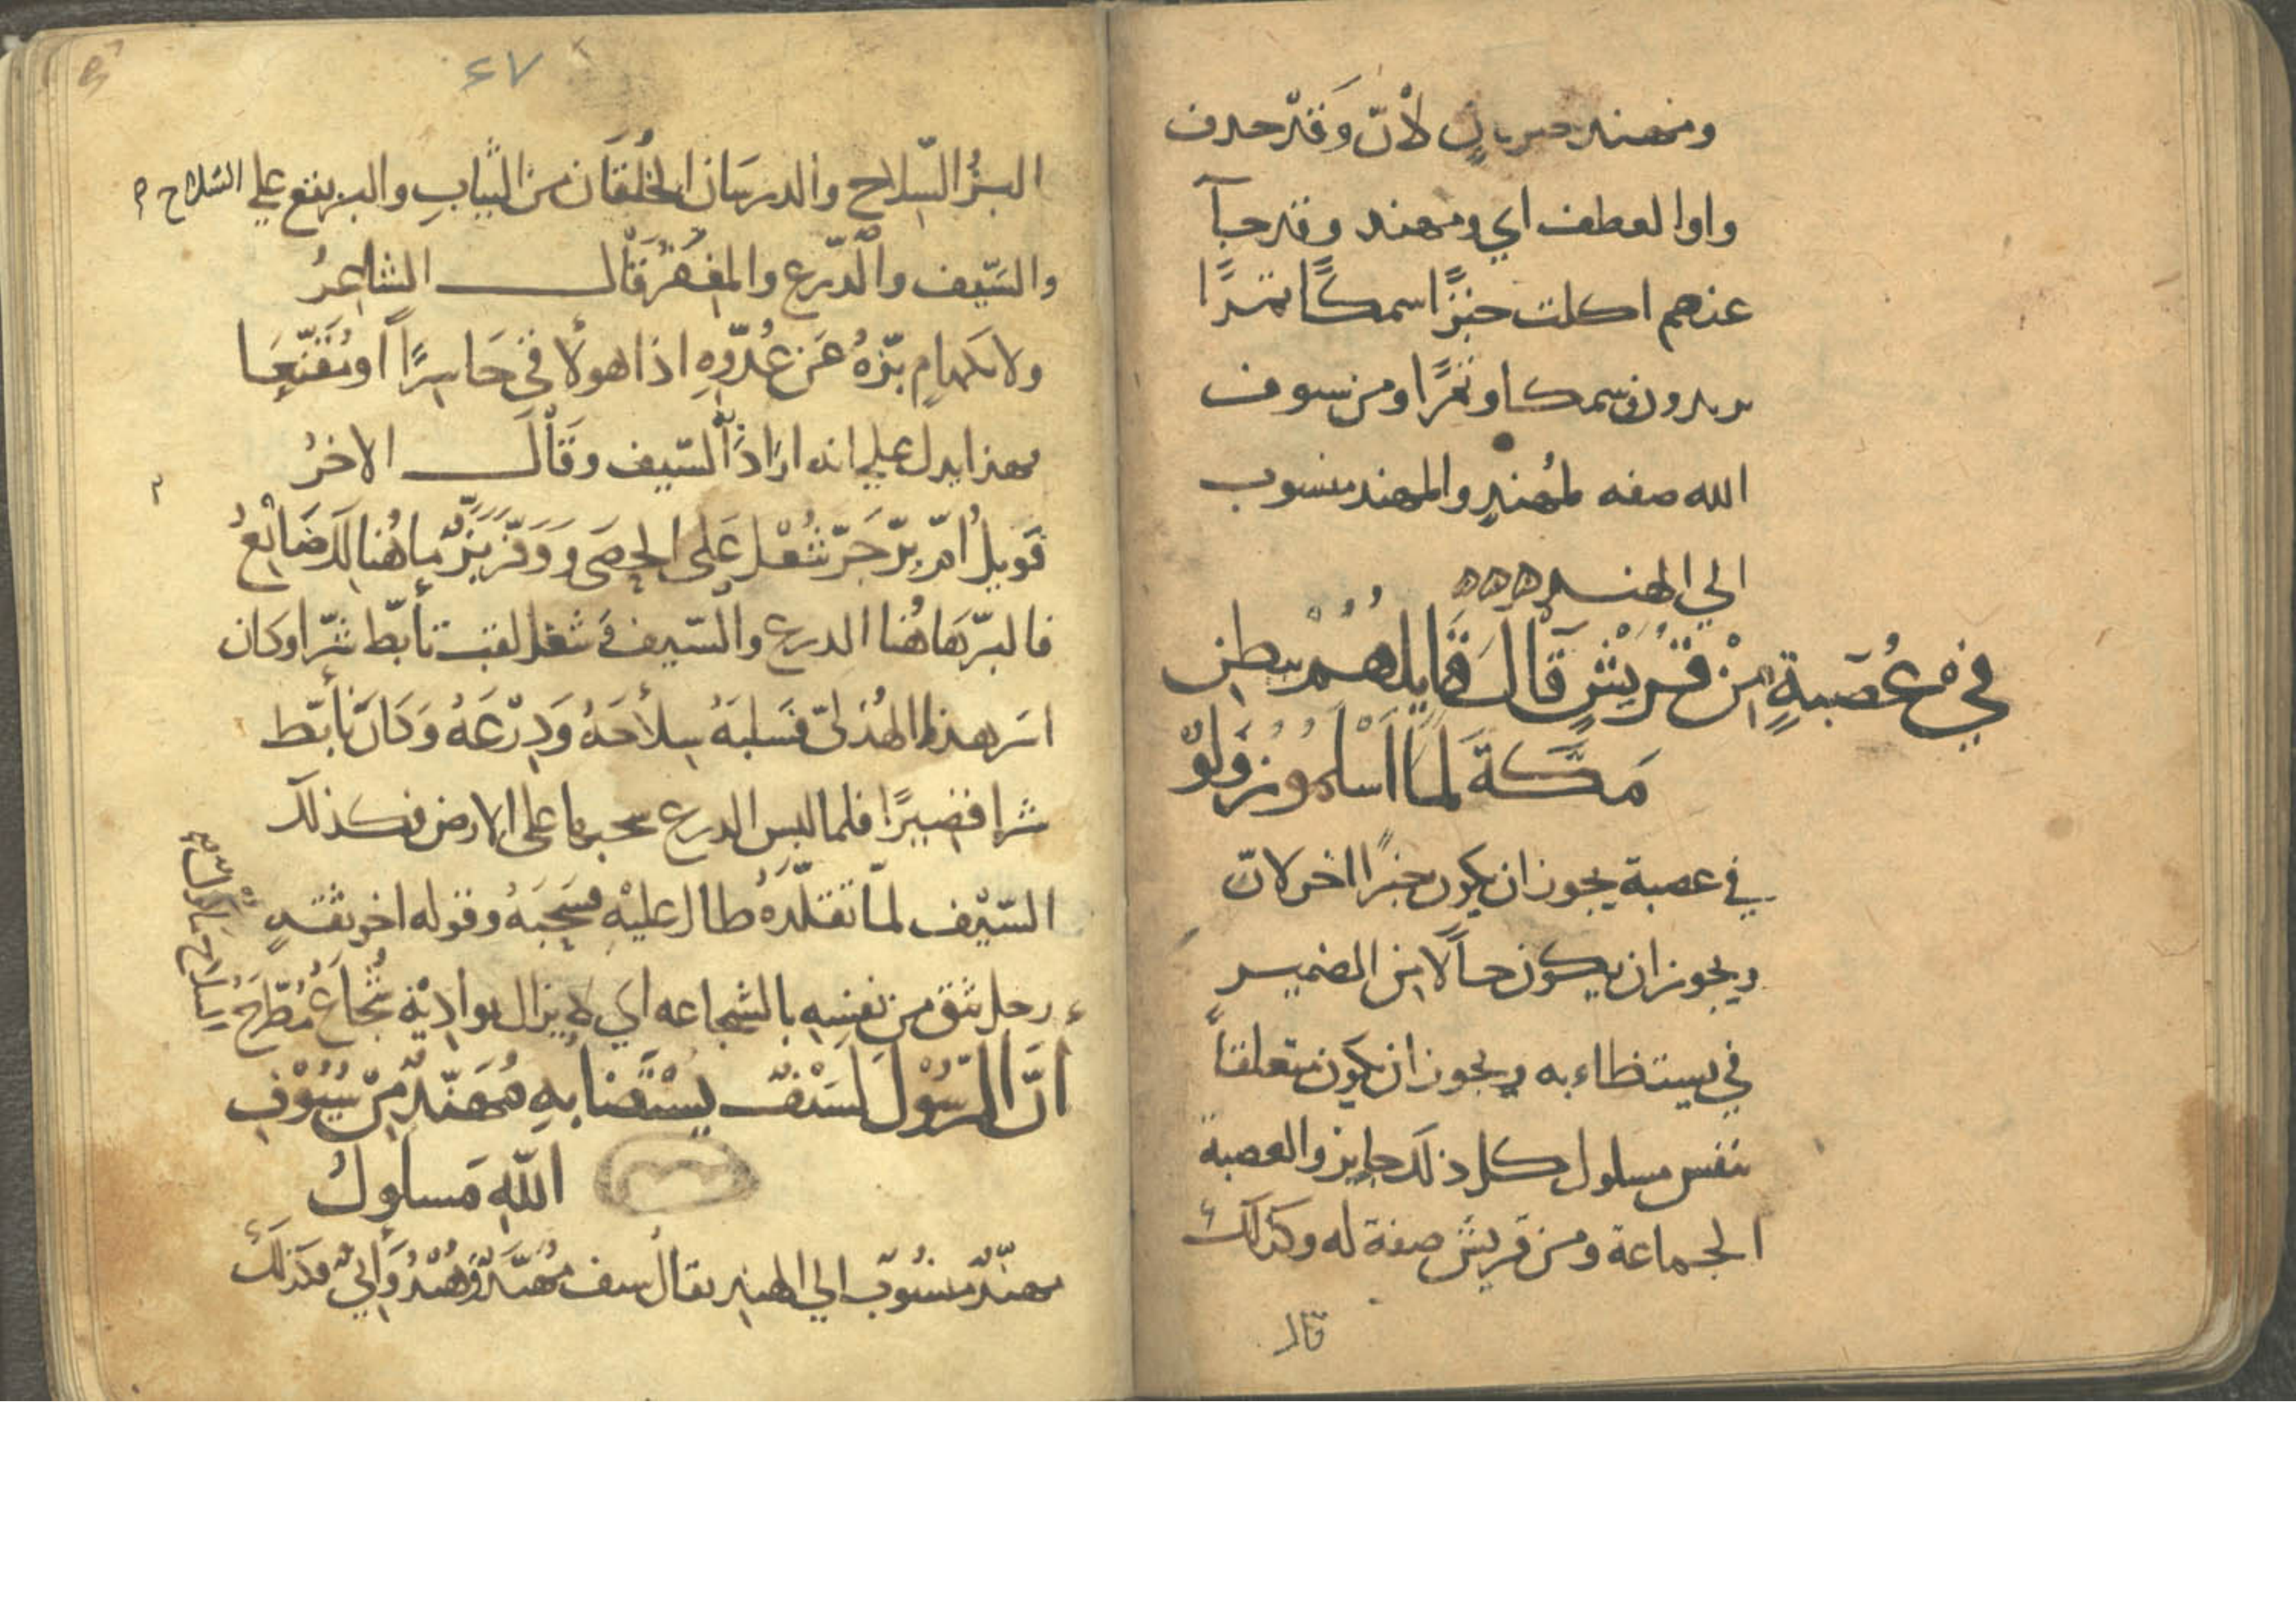 ومهند خبر ثان لأنّ وَقدْ حذف
واوا لعطف اي ومهند وقد حبآ
عنهم اكلت خبزًا سمكًا تمرًا
يريدون سمكا وتمرًا ومن سيوف
الله صفه لمُهندٍ والمهند منسوب
الي الهند
في عُصَبةٍ مِنْ قُرَيْشٍ قَالَ قَايِلهُمْ ببطن
مَكَّةَ لَمَّا أَسْلَمُوا زُولُوا
في عصبة يجوز ان يكون خبرًا اخر لانّ
ويجوز ان يكون حالًا من الضمير
في يستظاء به ويجوز ان يكون متعلقاً
بنفس مسلول كل ذلك جايز والعصبة
الجماعة ومن قريش صفة له وكذلك
قال
٦٧
البزُّ السّلاح والدرسَان الخُلْقَان من الثّيابِ والبز يقع علي السّلاح
والسَيّف والدّرع والمِغْفَر قَال الشاعرُ
ولا بكهامٍ بَزّهُ عَن عُدوّهِ اذا هو لاقي حَاسِرًا أو مُقَنّعَا
فهذا يدل علي انه ارَادَ السّيف وقَالَ الاخرُ
فَويلُ امِّ بزّ جَرّ شَعْل عَلى الحصَى وَوَقّرَ بَزٌّ مَا هُنالِكَ ضَائِعُ
فالبزّ هَاهُنا الدرع والسّيف وَشَعْل لقب تأبّط شرّا وكان
اسَر هذا الهُذلىّ فسَلبَهُ سِلاحَهُ وَدِرْعَهُ وَكَانَ تأبّط
شرا قصيرًا فلما لبس الدرع سحبها على الارض وكذلك
السّيْف لمّا تقلّدَهُ طال عليْهِ فسَحَبَهُ وقوله اخو ثقةٍ
رجل يثق من نفسِهِ بالشجاعه اي لا يزال بواديْه شُجَاعٌ مُطّرَحُ
سِلاح
انّ الرّسُوْلَ لَسَيْفٌ يُسْتَضَا بِهِ مُهَنّدٌ مِنْ سُيُوْفِ
اللّهِ مَسلُولُ
مهنّدٌ منسُوبٌ الي الهند يقال سيف مُهنّدٌ وَهُنْدُوَانِيٌّ وكَذلكَ